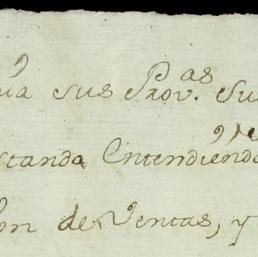 sus Prov.as Su
standa Entendiendo
on de Ventas, y